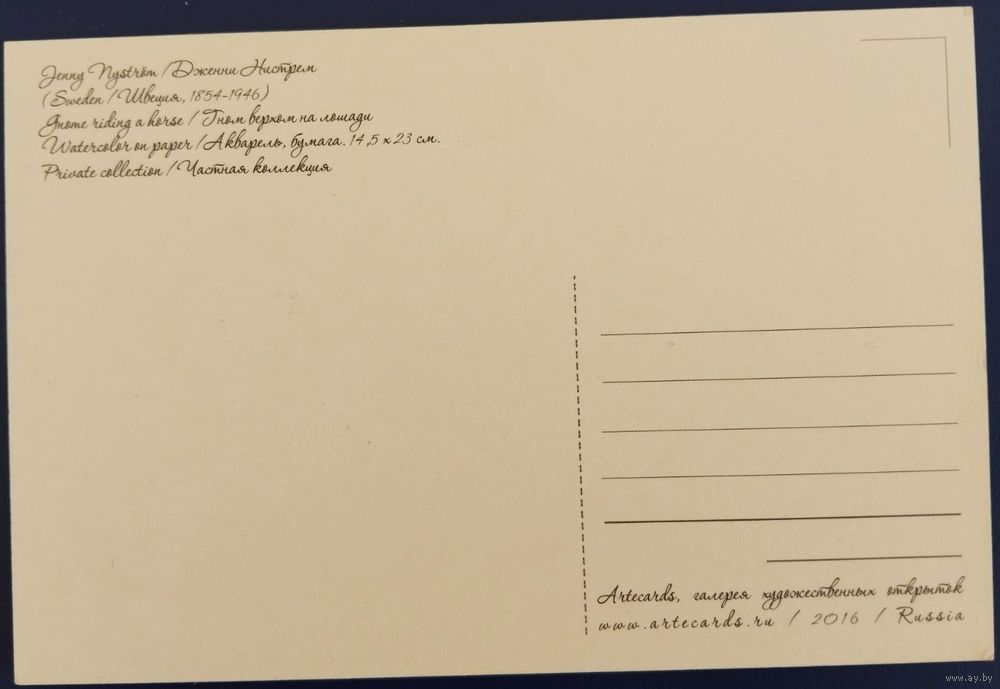 Jenny Nyström / Дженни Нистрем
(Sweden / Швеция, 1854-1946)
Gnome riding a horse / Гном верхом на лошади
Watercolor on paper / Акварель, бумага. 14,5 x 23 см.
Private collection / Частная коллекция
Artecards, галерея художественных открыток
www.artecards.ru / 2016 / Russia
www.ay.by